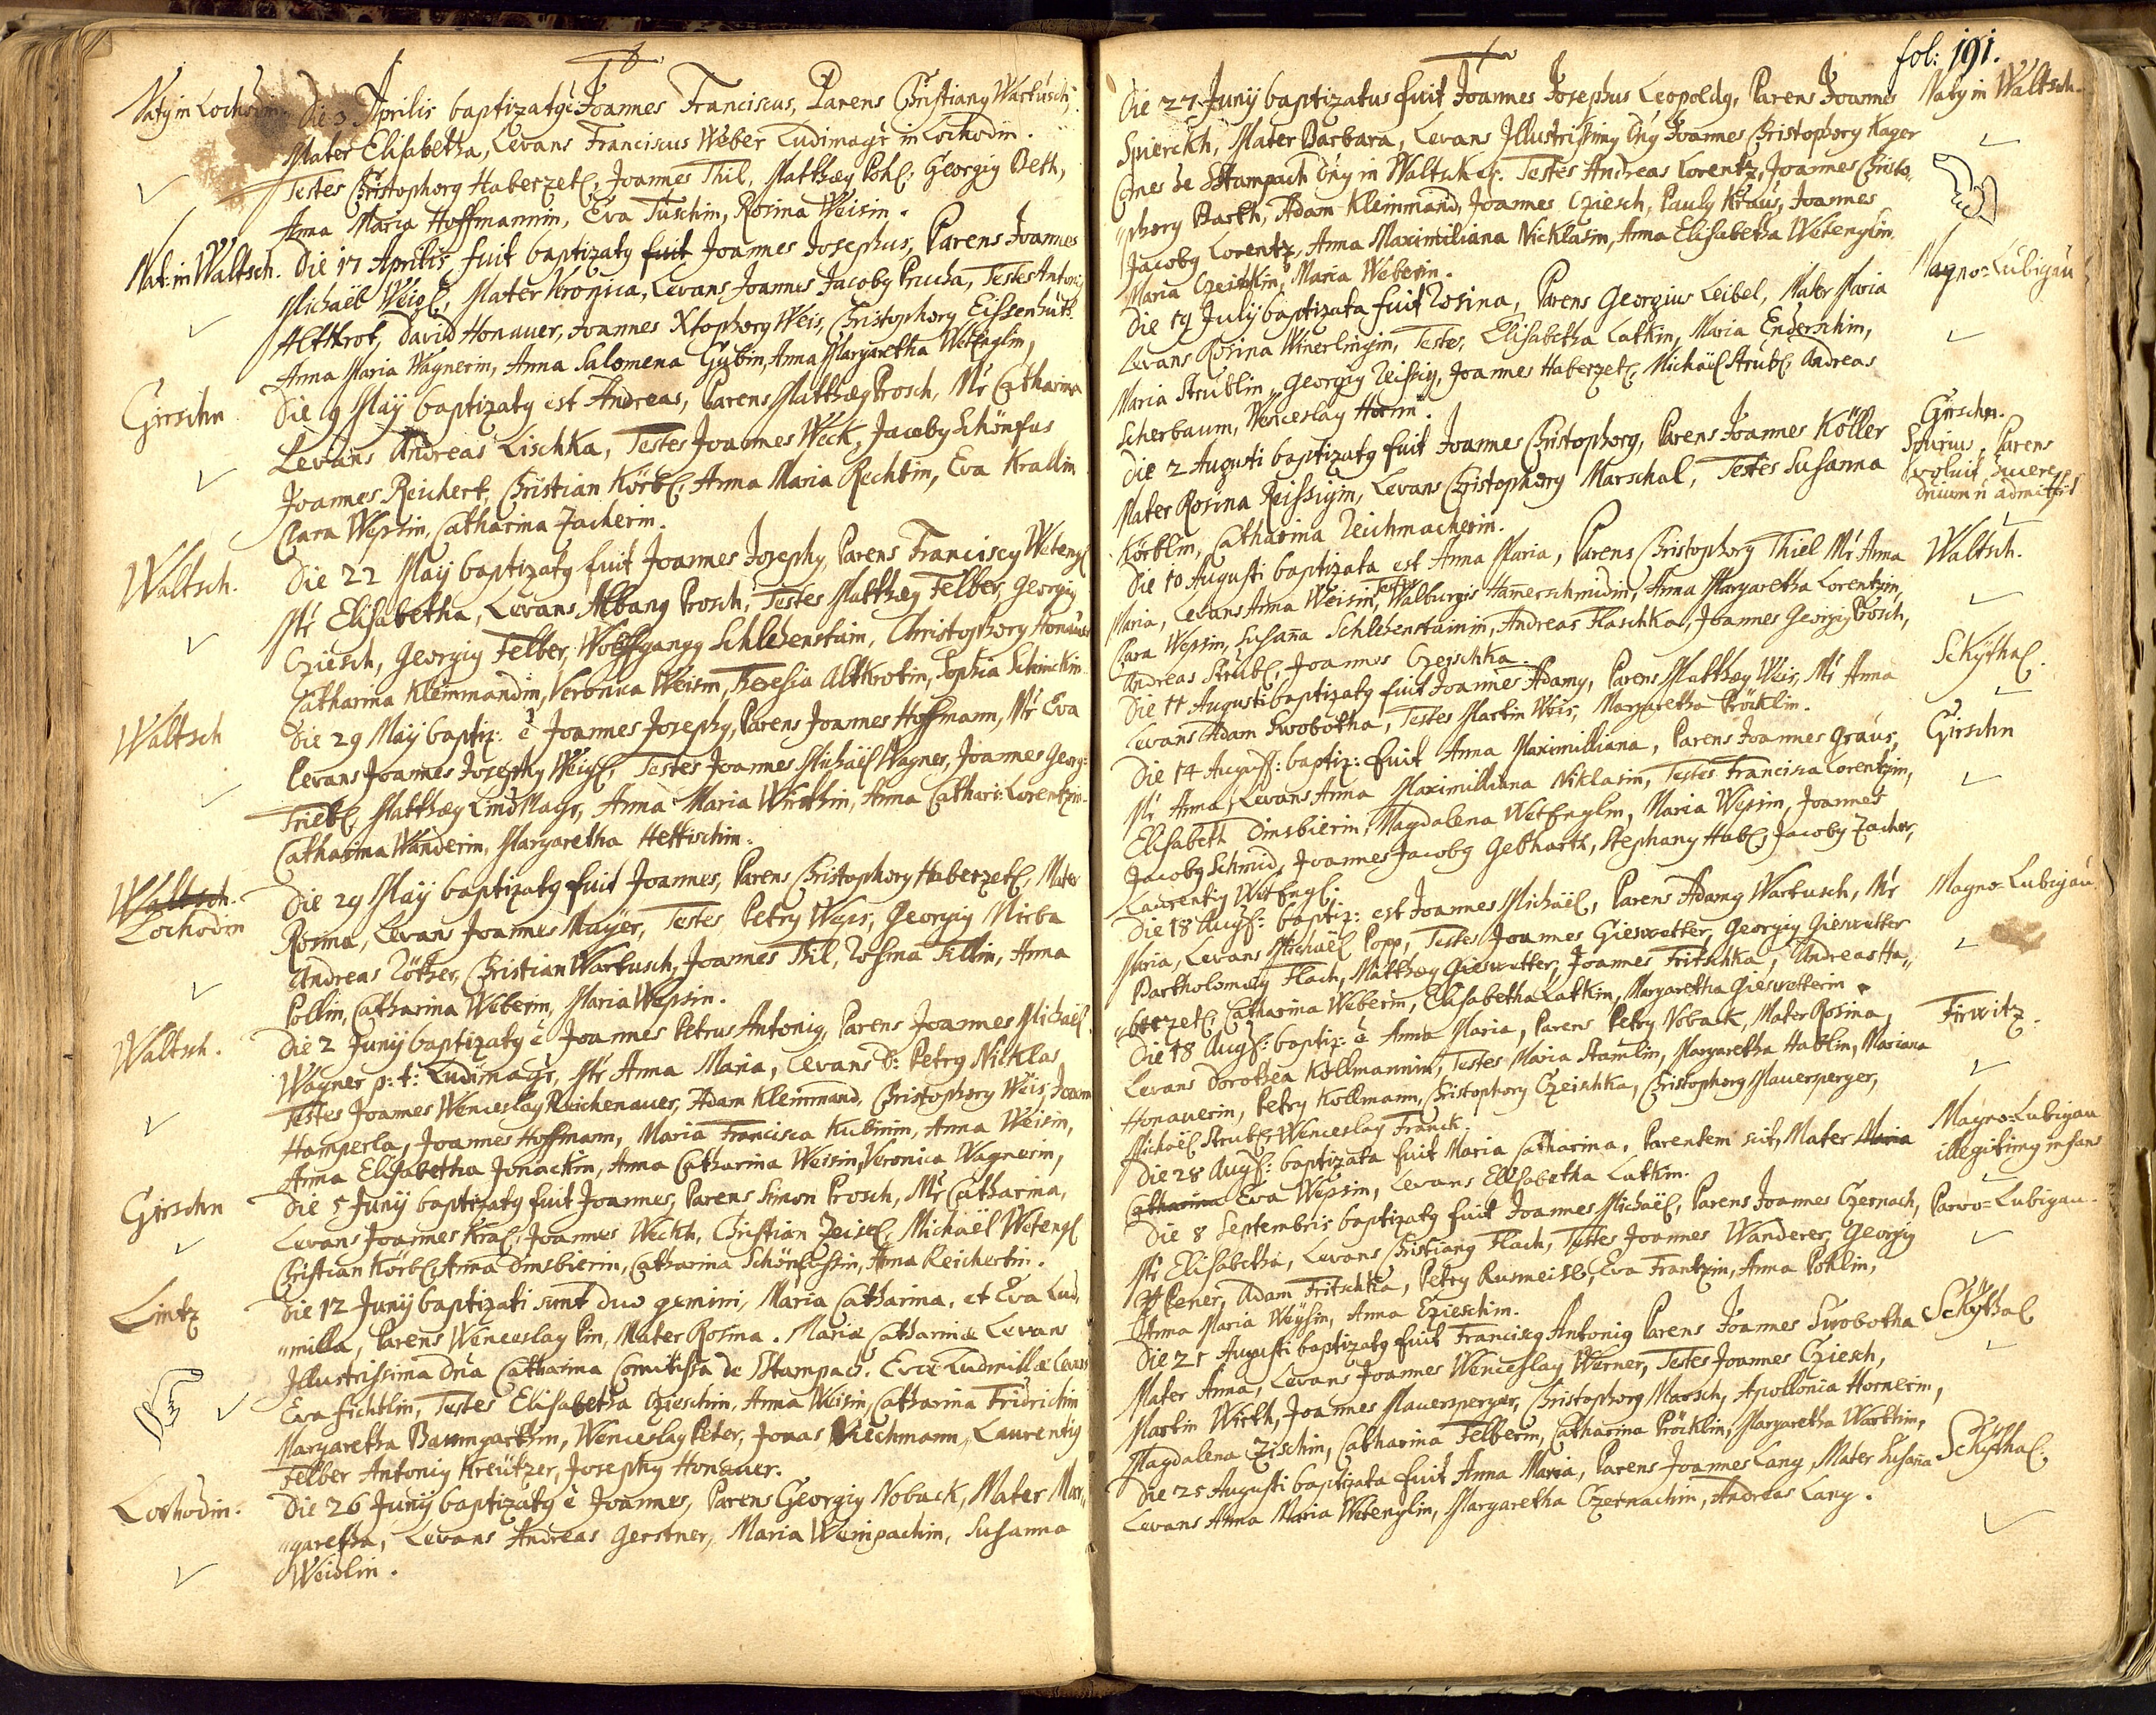 Natq in Lochodin Die 3 Aprilis baptizatq è Joannes Franciscus, Parens Christianq Wartusch
Mater Elisabetha, Levans Franciscus Weber Ludimagr in Lochodin.
Testes Christophorq Haberzetl, Joannes Thil, Matthæq Pohl, Georgiq Beth,
Anna Maria Hoffmannin, Eva Tuschin, Rosina Weisin.
Nat: in Waltsch. Die 17 Aprilis fuit baptizatq fuit Joannes Josephus, Parens Joannes
Michaël Weigl, Mater Veronica, Levans Joannes Jacobq Prucha, Testes Antoniq
Altkrot, David Honauer, Joannes Xtophorq Weis, Christophorq Eissenhut.
Anna Maria Wagnerin, Anna Salomena Gubin, Anna Margaretha Wetenglin,
Girschn Die 9 Maÿ baptizatq est Andreas, Parens Matthæq Prosch, Mr Catharina
Levans Andreas Lischka, Testes Joannes Weck, Jacobq Schönfus
Joannes Reichert, Christian Körbl, Anna Maria Rechtin, Eva Krallin
Clara Wepsin, Catharina Zacherin.
Waltsch. Die 22 Maÿ baptizatq fuit Joannes Josephq, Parens Franciscq Wetengl
Mr Elisabetha, Levans Albanq Prosch, Testes Matthæq Felber, Georgiq
Cziesch, Georgiq Felber, Wolffgangq Schlehenstain, Christophorq Honauer
Catharina Kleinmandin, Veronica Weisin, Theresia Altkrotin, Sophia Schinckin
Waltsch Die 29 Maÿ baptiz: è Joannes Josephq, Parens Joannes Hoffmann, Mr Eva
Levans Joannes Josephq Weigl, Testes Joannes Michaël Wagner, Joannes Georg:
Triebl, Matthæq Lindmayr, Anna Maria Wirthin, Anna Cathari: Lorentzin
Catharina Wanderin, Margaretha Hettischin.
Waltsch. Die 29 Maÿ baptizatq fuit Joannes, Parens Christophorq Haberzetl, Mater
Lochodin Rosina, Levans Joannes Mayer, Testes Petrq Weps, Georgiq Mirba
Andreas Röther, Christian Wartusch, Joannes Thil, Rosina Tillin, Anna
Pollin, Catharina Weberin, Maria Wepsin.
Waltsch. Die 2 Junÿ baptizatq è Joannes Petrus Antoniq, Parens Joannes Michaël
Wagner p: t: Ludimagr, Mr Anna Maria, Levans D: Petrq Nicklas
Testes Joannes Wenceslaq Reichenauer, Adam Kleinmand, Christophorq Weis, Joann
Hamperla, Joannes Hoffmann, Maria Francisca Kubinin, Anna Weisin,
Anna Elisabetha Jonackin, Anna Catharina Weisin, Veronica Wagnerin,
Girschn Die 5 Junÿ baptizatq fuit Joannes, Parens Simon Prosch, Mr Catharina,
Levans Joannes Kral, Joannes Weckh, Christian Zeisel, Michaël Wetengl
Christian Körbl, Anna Dinsbierin, Catharina Schönfussin, Anna Reichertin.
Lintz Die 12 Junÿ baptizati sunt duo gemini, Maria Catharina, et Eva Lud,
milla, Parens Wenceslaq Pin, Mater Rosina. Mariæ Catharinæ Levans
Illustrissima Dña Catharina Comitissa de Stampach. Evæ Ludmillæ Levans
Eva Fichtlin, Testes Elisabetha Czieschin, Anna Weisin, Catharina Fridrichin
Margaretha Baumgarthin, Wenceslaq Peter, Jonas Viechmann, Laurentiq
Felber Antoniq Kreutzer, Josephq Honauer.
Lochodin. Die 26 Junÿ baptizatq è Joannes, Parens Georgiq Noback, Mater Mar,
garetha, Levans Andreas Gerstner, Maria Weinpachin, Susanna
Weidlin.
fol: 191.
Die 27 Junÿ baptizatus fuit Joannes Josephus Leopoldq, Parens Joannes Natq in Waltsch.
Spierckh, Mater Barbara, Levans Illustrissimq Dñq Joannes Christophorq Kager
Comes de Stampach Dñq in Waltsch. Testes Andreas Lorentz, Joannes Christo,
phorq Barth, Adam Kleinmand, Joannes Cziesch, Paulq Kraus, Joannes
Jacobq Lorentz, Anna Maximiliana Nicklasin, Anna Elisabetha Wetenglin.
Maria Czeischkin, Maria Weberin.
Die 19 Julÿ baptizata fuit Rosina, Parens Georgius Leibel, Mater Maria Magno=Lubigau
Levans Rosina Winerlingin, Testes, Elisabetha Latkin, Maria Enderschin,
Maria Strublin, Georgiq Reissig, Joannes Haberzetl, Michaël Strubl, Andreas
Scherbaum, Wenceslaq Hornn.
Die 2 Augusti baptizatq fuit Joannes Christophorq, Parens Joannes Köller Girschn.
Mater Rosina Reissigin, Levans Christophorq Marschal, Testes Susanna Spurius, Parens
Körblin, Catharina Teichmacherin. voluit ducere
Die 10 Augusti baptizata est Anna Maria, Parens Christophorq Thiel Mr Anna Waltsch.
Maria, Levans Anna Weisin, Testes Walburgis Hamerschmidin, Anna Margaretha Lorentzin,
Clara Wepsin, Susana Schlehenstainin, Andreas Flaschka, Joannes Georgiq Prosch,
Andreas Strubl, Joannes Czeischka.
Die 11 Augusti baptizatq fuit Joannes Adamq, Parens Matthæq Weis, Mr Anna Schÿthal.
Levans Adam Swobotha, Testes Martin Weis, Margaretha Pröcklin.
Die 14 August: baptiz: fuit Anna Maximilliana, Parens Joannes Graus, Girschn
Mr Anna, Levans Anna Maximilliana Niklasin, Testes Francisca Lorentzin,
Elisabeth Dinsbierin, Magdalena Wetenglin, Maria Wepsin, Joannes
Jacobq Schmid, Joannes Jacobq Gebharth, Stephanq Habl, Jacobq Zacher,
Laurentiq Wetengl.
Die 18 Aug: baptiz: est Joannes Michaël, Parens Adamq Wartusch, Mr Magno=Lubigau
Maria, Levans Michaël Popp, Testes Joannes Gieswetter, Georgiq Gieswetter
Bartholomæq Flach, Matthæq Gieswetter, Joannes Fritschka, Andreas Ha,
berzetl, Catharina Weberin, Elisabetha Latkin, Margaretha Gieswetterin.
Die 18 Aug: baptiz: è Anna Maria, Parens Petrq Noback, Mater Rosina, Firwitz.
Levans Dorothea Kollmannin, Testes Maria Stamlin, Margaretha Hablin, Mariana
Honauerin, Petrq Kollmann, Christophorq Czeischka, Christophorq Mauersperger,
Michaël Strubl, Wenceslaq Franck.
Die 28 Aug: baptizata fuit Maria Catharina, Parentem scit, Mater Maria Magno=Lubigau
Catharina Eva Wepsin, Levans Elisabetha Latkin. illegitimq infans
Die 8 Septembris baptizatq fuit Joannes Michaël, Parens Joannes Czernach, Parvo=Lubigau.
Mr Elisabetha, Levans Christianq Flach, Testes Joannes Wanderer, Georgiq
Adam Fritschka, Petrq Rusmeisl, Eva Frantzin, Anna Pohlin,
Anna Maria Weysin, Anna Czieschin.
Die 21 Augusti baptizatq fuit Franciscq Antoniq Parens Joannes Swobotha Schÿthal
Mater Anna, Levans Joannes Wenceslaq Werner, Testes Joannes Cziesch,
Martin Wirth, Joannes Mauersperger, Christophorq Marsch, Apollonia Hornerin,
Magdalena Czischin, Catharina Felberin, Catharina Pröcklin, Margaretha Warthin,
Die 25 Augusti baptizata fuit Anna Maria, Parens Joannes Lang, Mater Susana Schÿthal.
Levans Anna Maria Wetenglin, Margaretha Czernachin, Andreas Lang.